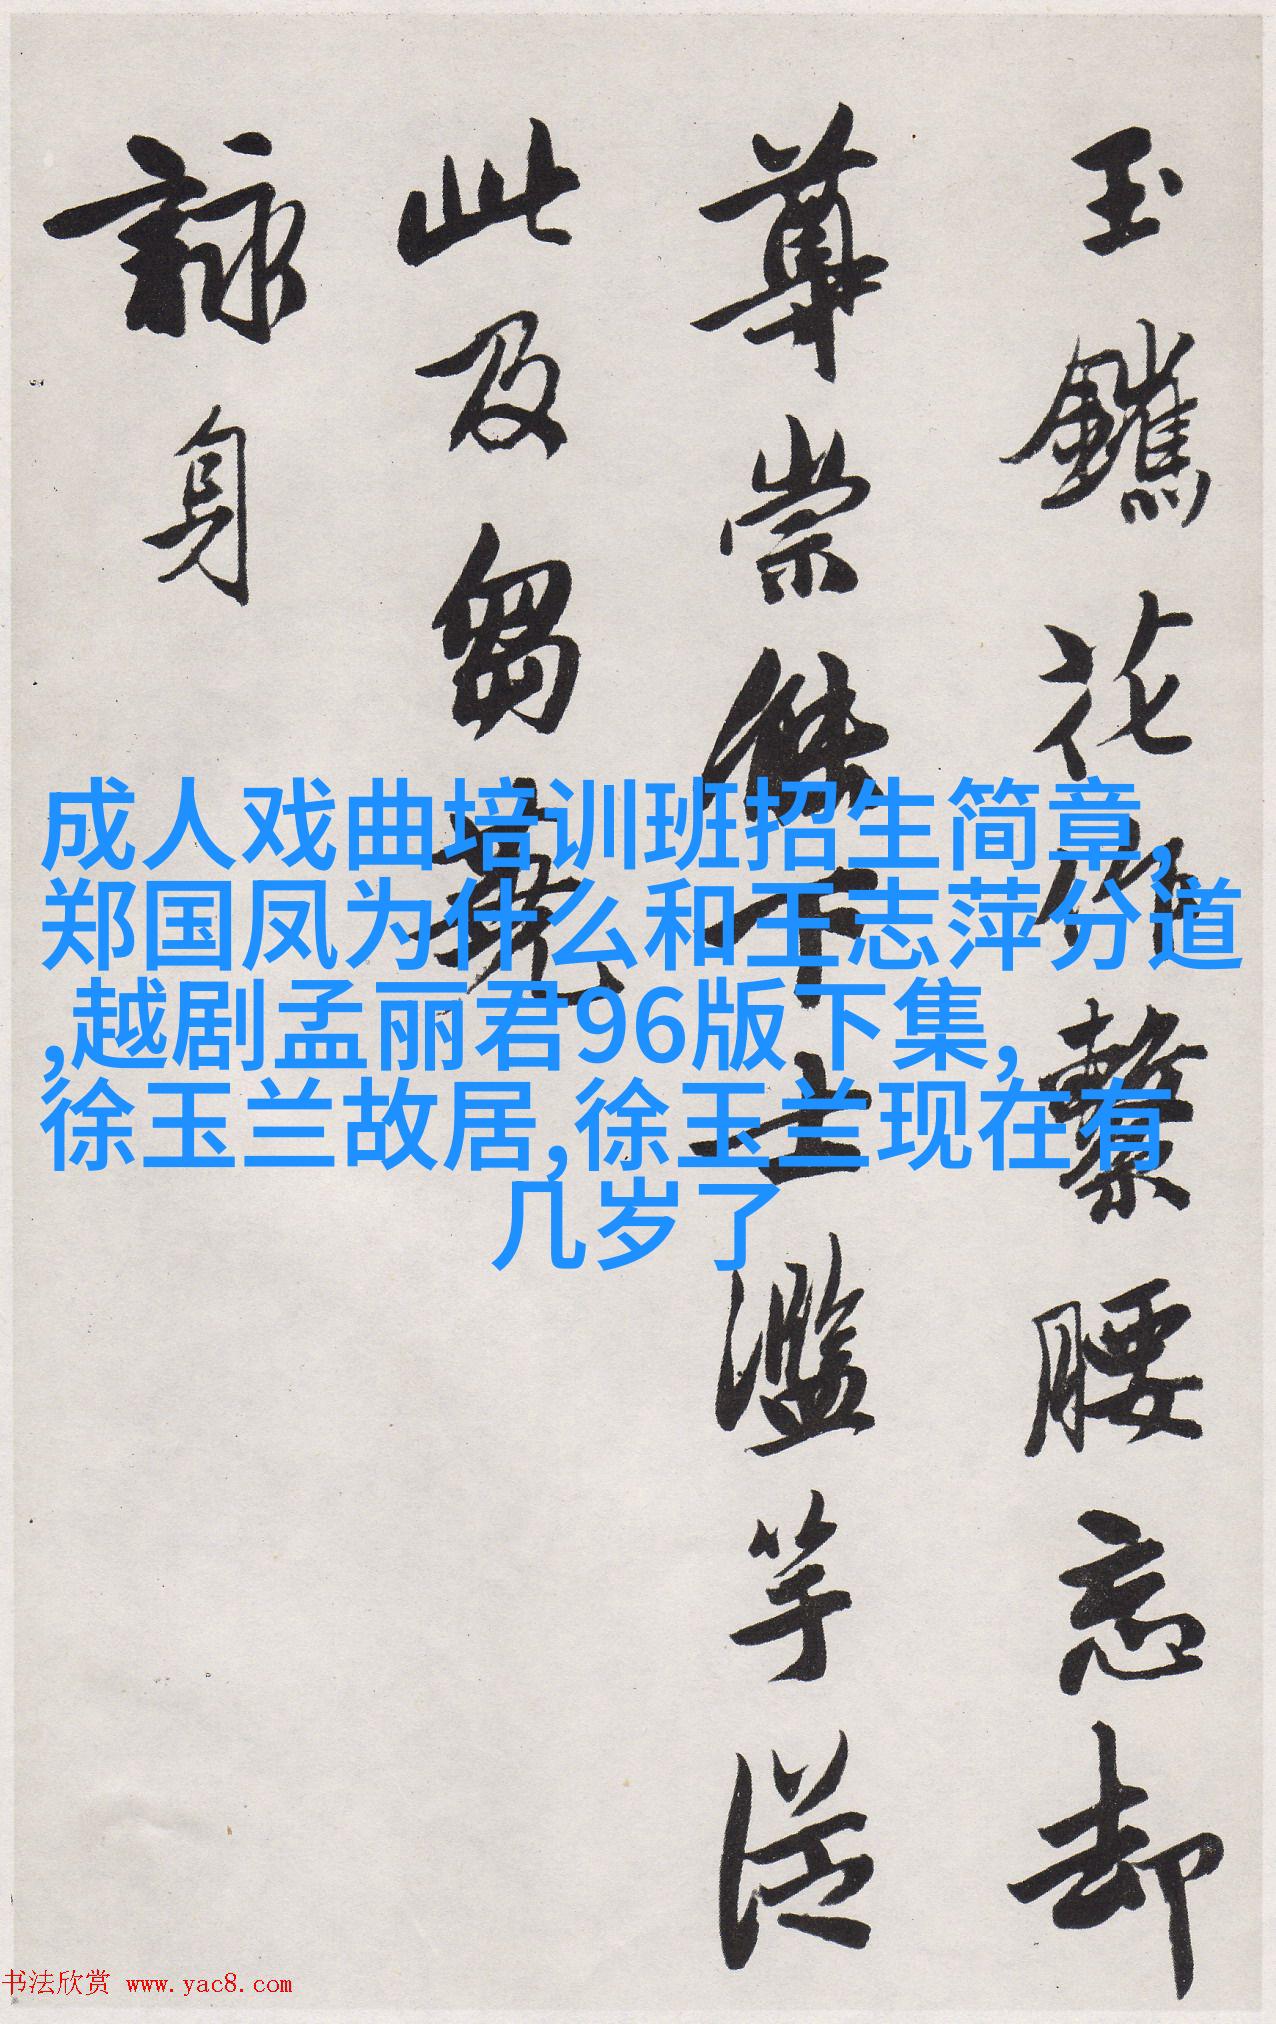 玉鑱花
繫腰忘却
尊崇傑
士濫竽從
此及芻蕘
詠身
成人戏曲培训班招生简章,
郑国凤为什么和王志萍分道
,越剧孟丽君96版下集,
徐玉兰故居,徐玉兰现在有
几岁了
书法欣赏 www.yac8.com